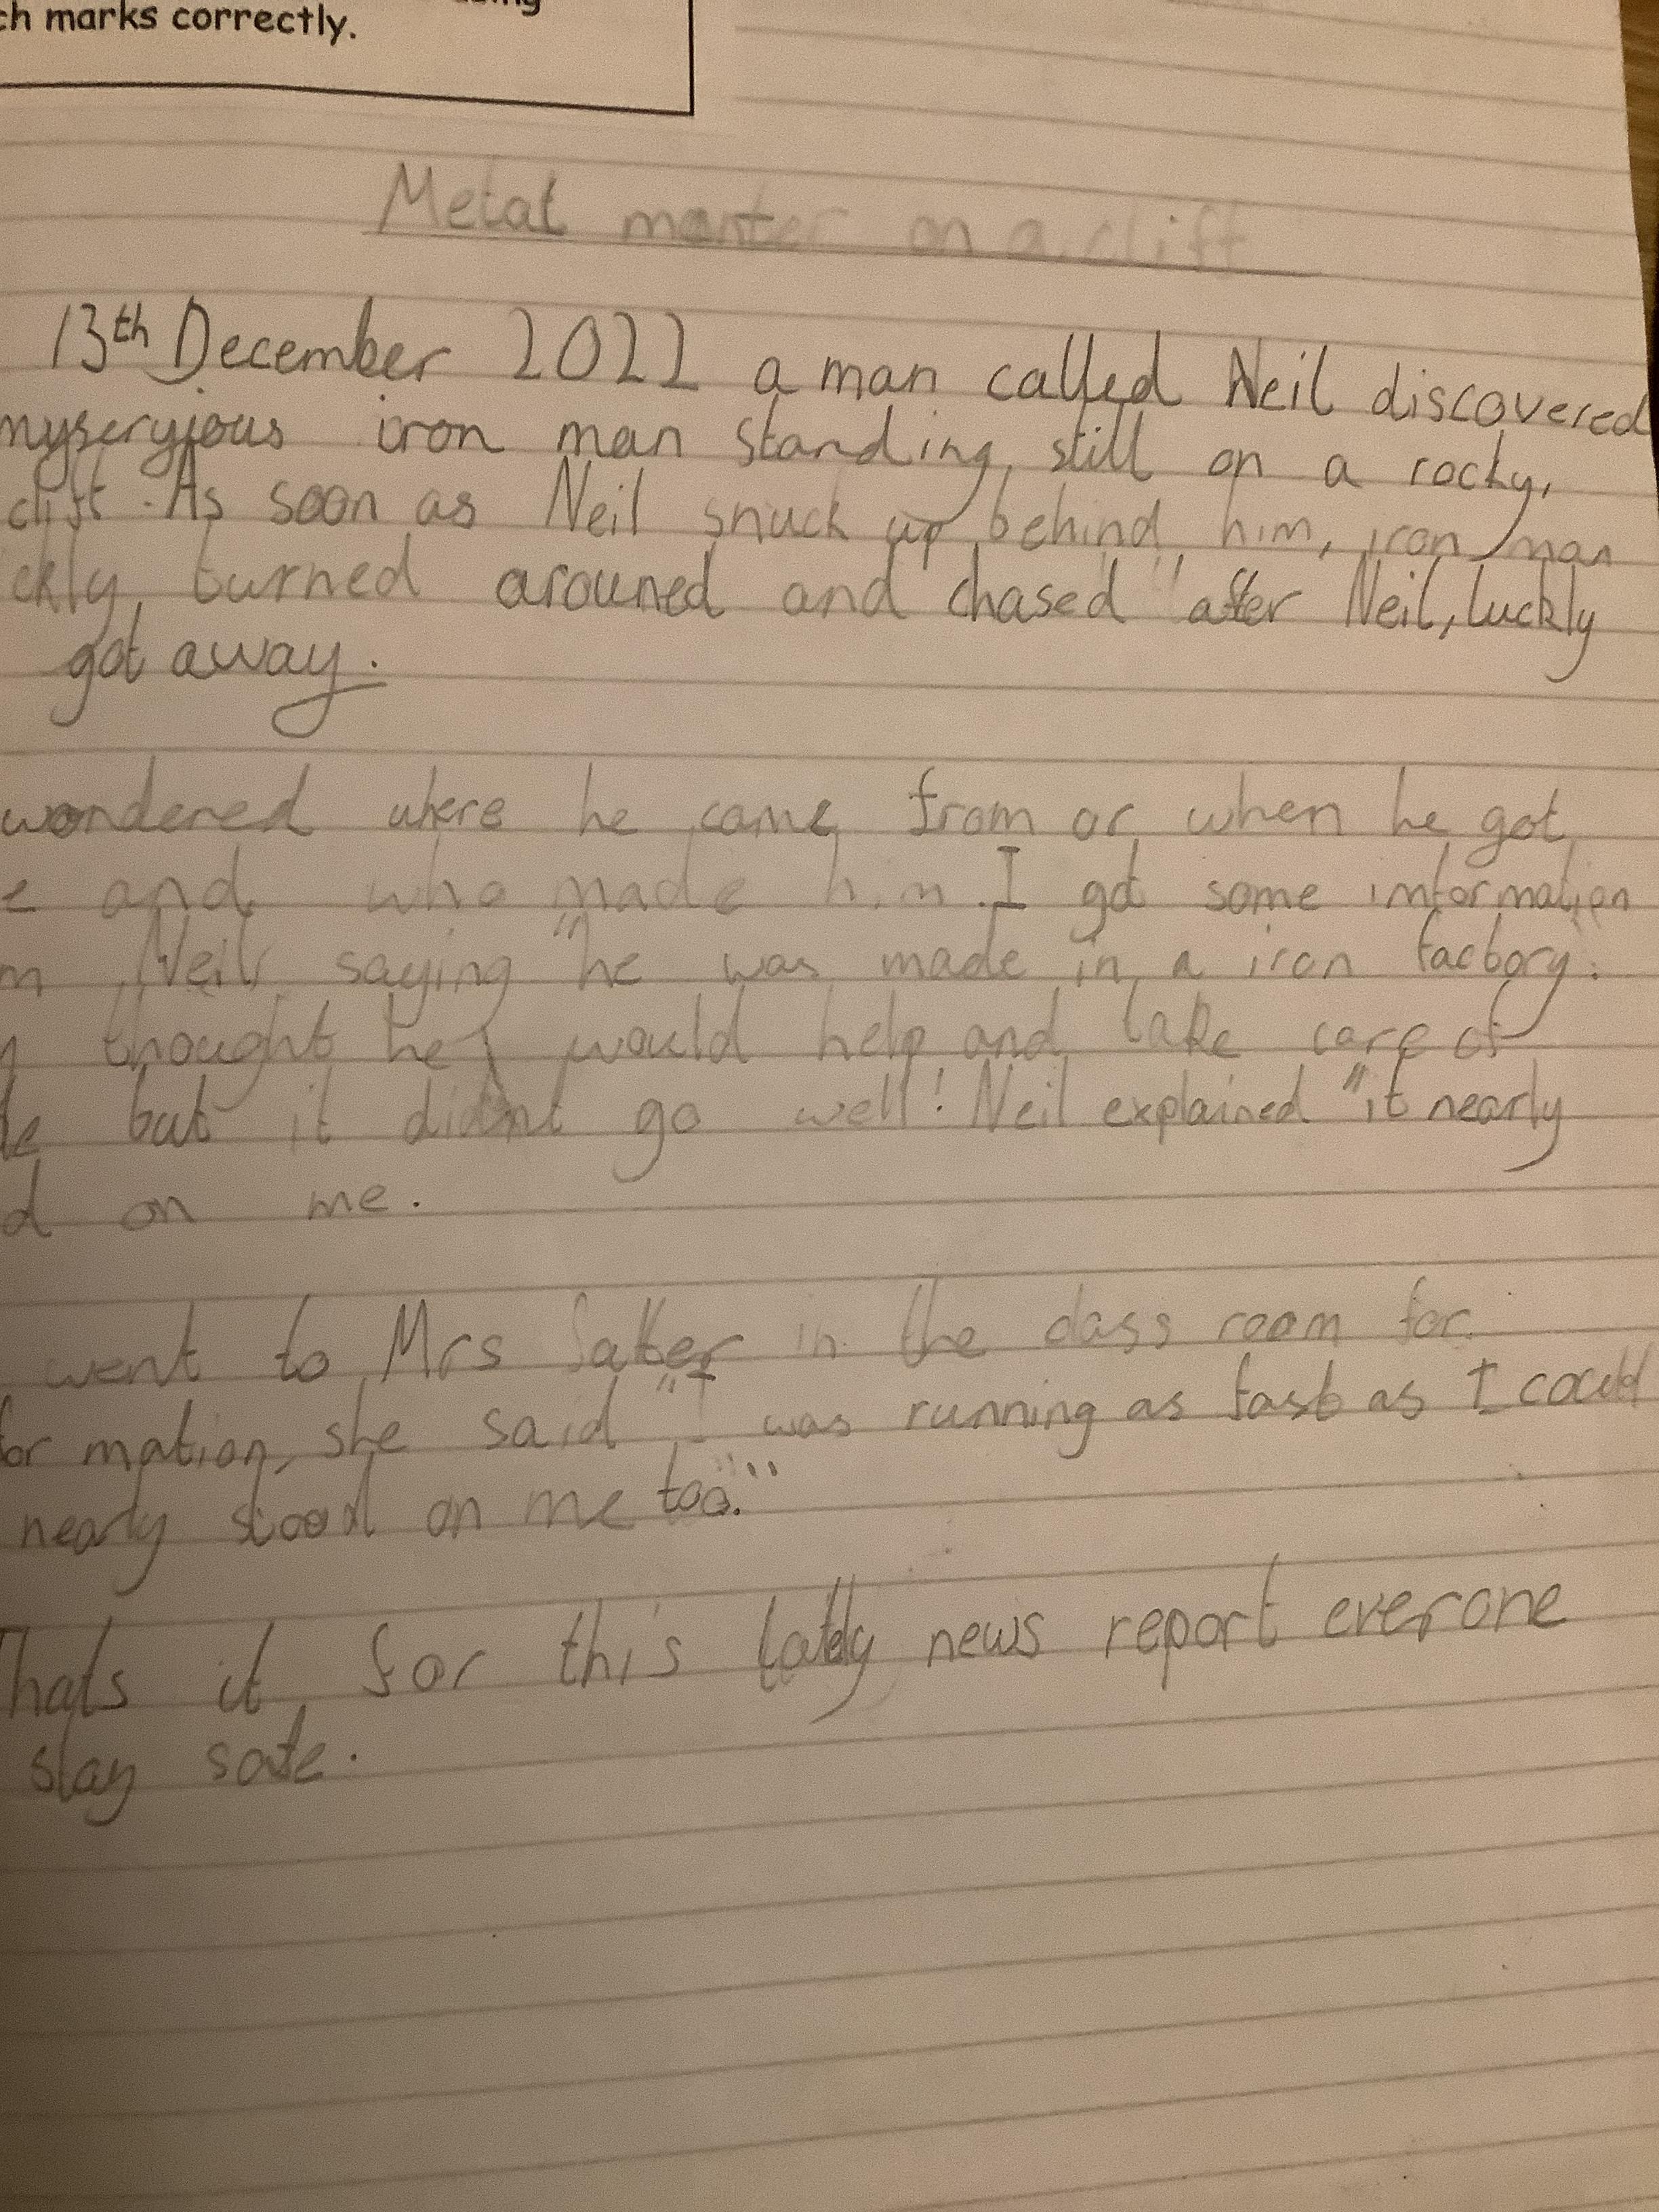 ch marks correctly.
Metal monster on a clift
13th December 2022 a man called Neil discovered
myseryious iron man standing still on a rocky,
clift. As soon as Neil snuck up behind him, iron man
ckly, turned arouned and chased after Neil, luckly
got away.
wondered where he came from or when he got
e and who made him. I got some information
m Neil saying "he was made in a iron factory.
thought he would help and take care of
but it didnt go well! Neil explained "it nearly
d on me.
went to Mrs Salter in the class room for
for mation, she said "I was running as fast as I could
nearly stood on me too."
Thats it for this lately news report everone
stay safe.